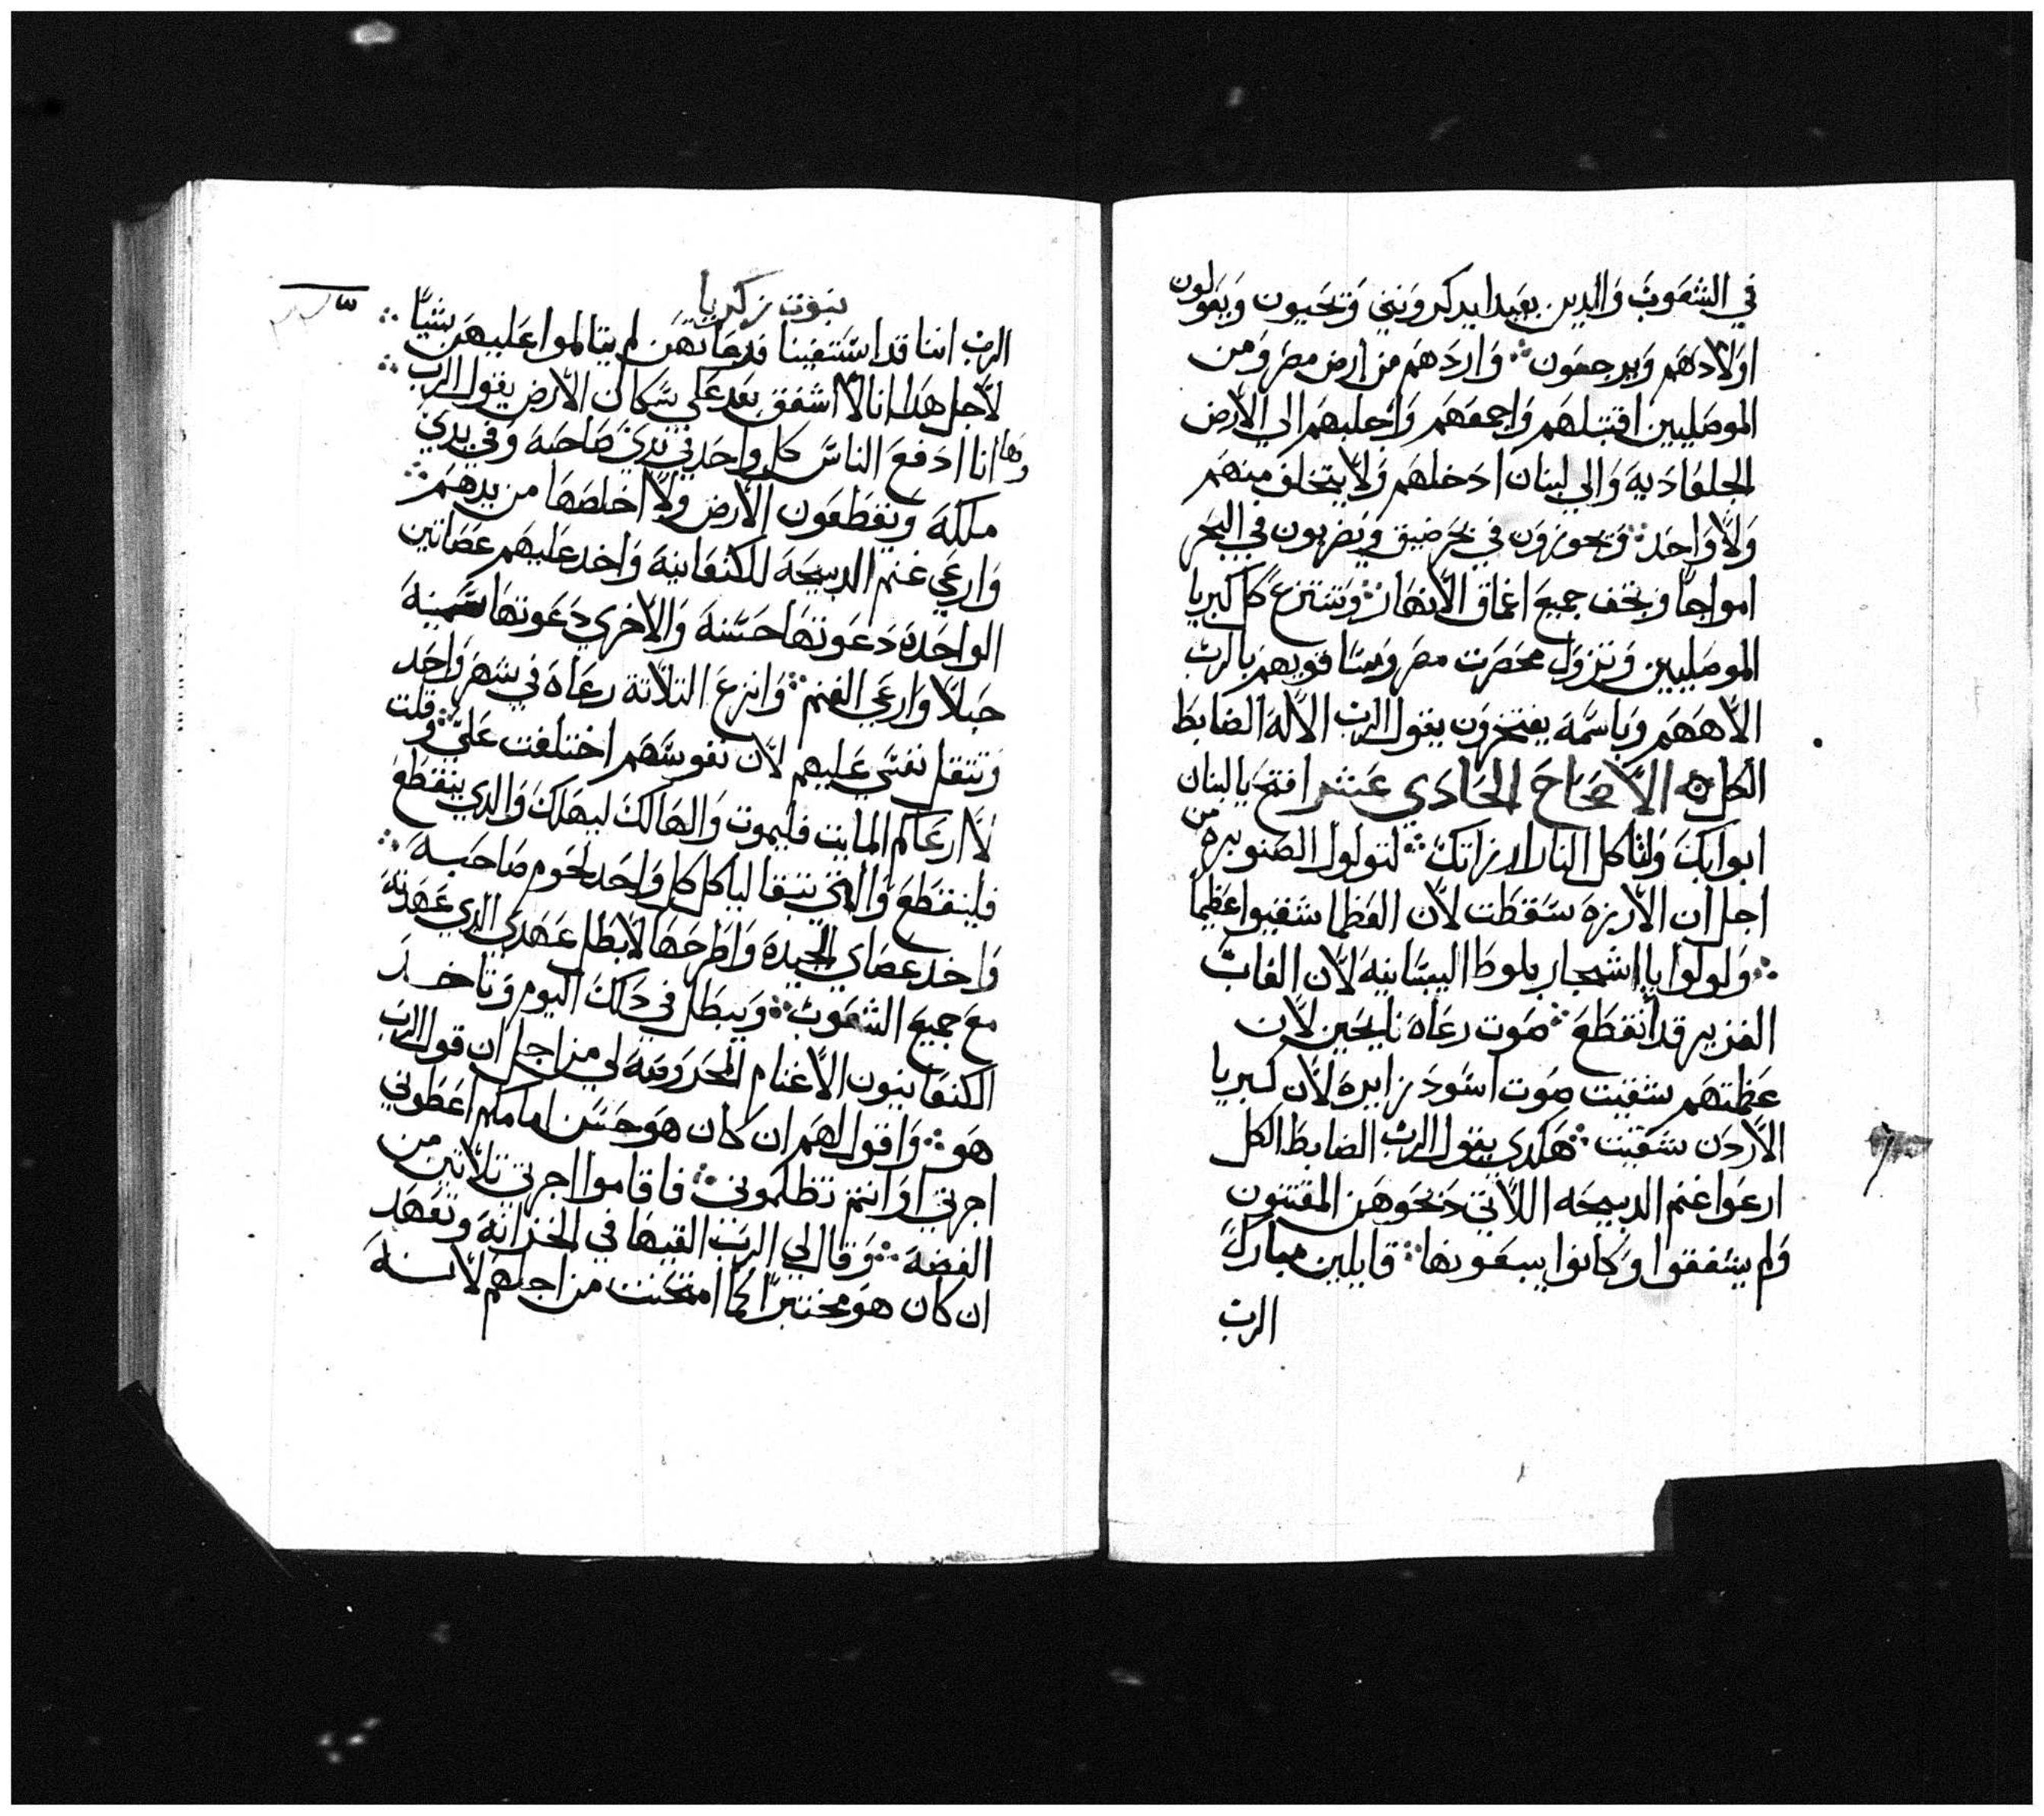 في الشعوب والدين بعيدا يدكرونني وتحيون ويقولون
اولادهم ويرجعون ∴ واردهم من ارض مصر ومن
الموصليين اقتبلهم واجمعهم واجلبهم الي الارض
الجلعادية والي لبنان ادخلهم ولا يتخلف منهم
ولا واحد ∴ ويجوزون في بحر ضيق ويضربون في البحر
امواجا ويجف جميع اعماق الانهار ∴ وتنتزع كل كبريا
الموصليين وتزول محصرت مصر وساقويهم بالرب
الاههم وباسمه يفتخرون يقول الرب الاله الضابط
الكل ۞ الاصحاح الحادي عشر افتح يا لبنان
ابوابك ولتاكل النار ارزاتك ∴ لتولول الصنوبره من
اجل ان الارزه سقطت لان العظما شقيوا عظيما
∴ ولولوا يا اشجار بلوط البيسانيه لان الغاب
الغزير قد انقطع ∴ صوت رعاه نايحين لان
عظمتهم شقيت صوت اسود زايره لان كبريا
الاردن شقيت ∴ هكدي يقول الرب الضابط الكل
ارعوا غنم الدبيحه اللاتي دبحوهن المقتنون
ولم يشفقوا وكانوا يبيعونها ∴ قايلين مبارك
الرب
نبوت زكريا
الرب اننا قد استغنينا ورعاتهن لم يتالموا عليهن بشيا ∴
لاجل هدا انا لا اشفق بعد علي سكان الارض يقول الرب ∴
وها انا ادفع الناس كل واحد في يدي صاحبه وفي يدي
ملكه ويقطعون الارض ولا اخلصها من يدهم ∴
وارعي غنم الدبيحة للكنعانية واخد عليهم عصاتين
الواحده دعوتها حسنه والاخري دعوتها سمية
حبلا وارعي الغنم ∴ وانزع التلاتة رعاه في شهر واحد
وتتقل نفسي عليهم لان نفوسهم اختلفت علي ∴ وقلت
لا ارعاكم المايت فليموت والهالك ليهلك والدي ينقطع
فلينقطع والتي تتبقا لياكل كل واحد لحوم صاحبه ∴
واخد عصاي الجيدة واطرحها لابطل عهدي الدي عهدته
مع جميع الشعوب ∴ ويبطل في دلك اليوم وتاخد
الكنعانيون الاغنام المحروصه لي من اجل ان قول الرب
هو ∴ واقول لهم ان كان هو حسن امامكم اعطوني
اجرتي او انتم تظلموني ∴ فاقاموا اجرتي تلاتين من
الفضه ∴ وقال لي الرب القيها في الخزانة وتعهد
ان كان هو مختبرا كما امتحنت من اجلهم لانه